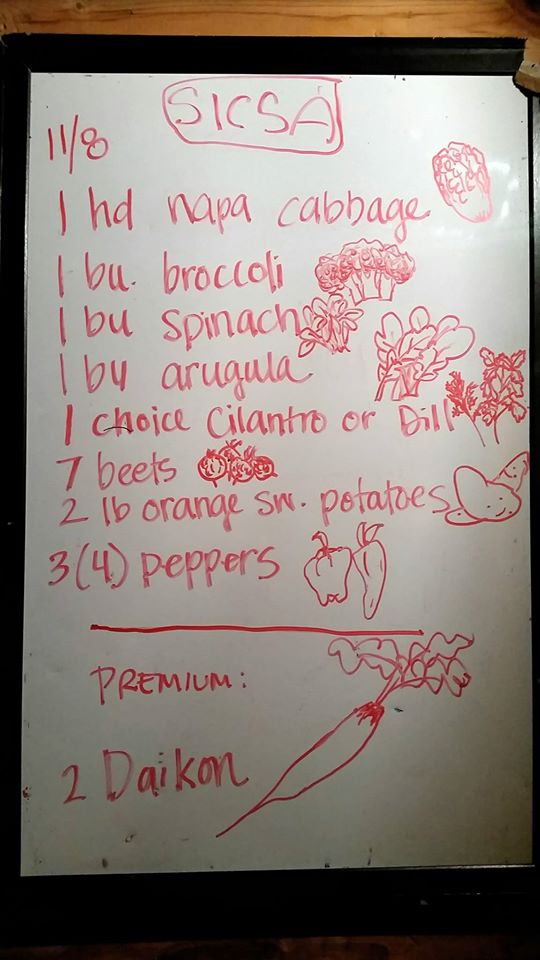 SICSA
11/8
1 hd napa cabbage
1 bu. broccoli
1 bu spinach
1 bu arugula
1 choice Cilantro or Dill
7 beets
2 lb orange sw. potatoes
3(4) peppers
PREMIUM:
2 Daikon